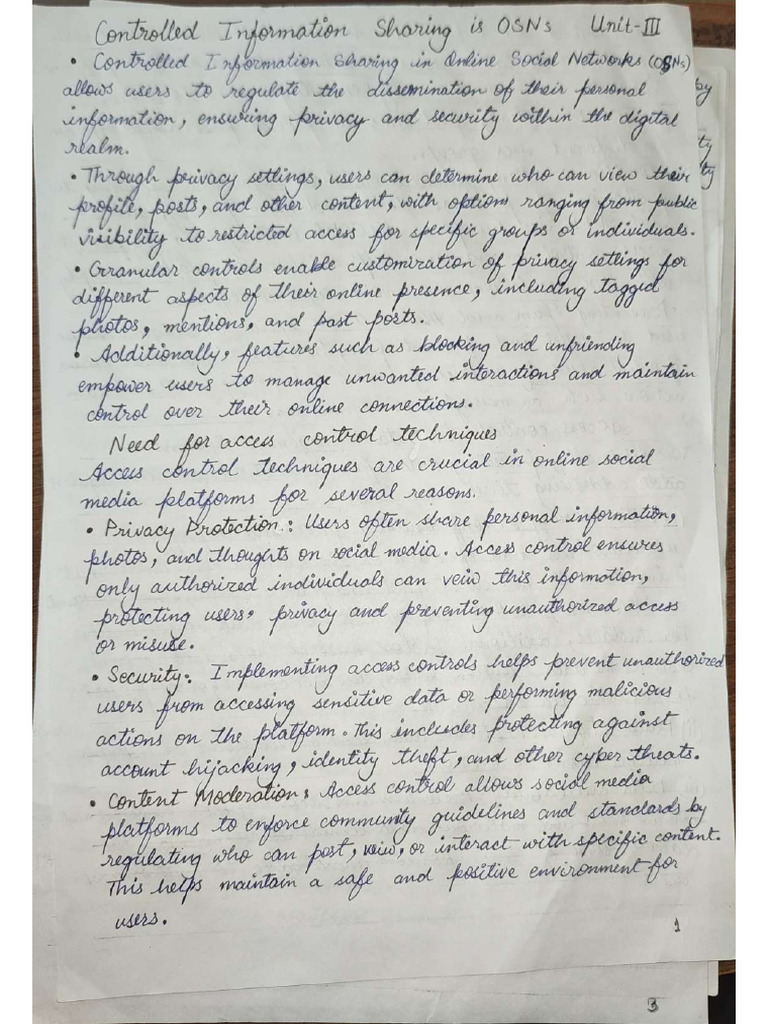 Controlled Information Sharing is OSNs Unit-III
• Controlled Information Sharing in Online Social Networks (OSNs)
allows users to regulate the dissemination of their personal
information, ensuring privacy and security within the digital
realm.
• Through privacy settings, users can determine who can view their
profile, posts, and other content, with options ranging from public
visibility to restricted access for specific groups or individuals.
• Granular controls enable customization of privacy settings for
different aspects of their online presence, including tagged
photos, mentions, and past posts.
• Additionally, features such as blocking and unfriending
empower users to manage unwanted interactions and maintain
control over their online connections.
Need for access control techniques
Access control techniques are crucial in online social
media platforms for several reasons.
• Privacy Protection: Users often share personal information,
photos, and thoughts on social media. Access control ensures
only authorized individuals can veiw this information,
protecting users, privacy and preventing unauthorized access
or misuse.
• Security: Implementing access controls helps prevent unauthorized
users from accessing sensitive data or performing malicious
actions on the platform. This includes protecting against
account hijacking, identity theft, and other cyber threats.
• Content Moderation: Access control allows social media
platforms to enforce community guidelines and standards by
regulating who can post, veiw, or interact with specific content.
This helps maintain a safe and positive environment for
users.
1
3